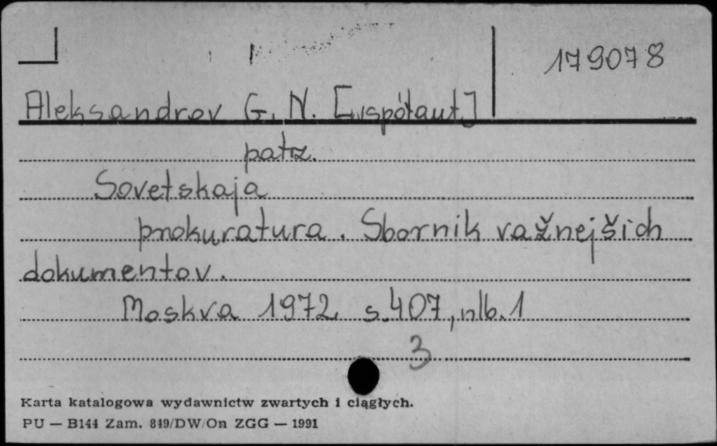 179078
Aleksandrov G. N. [współaut]
patrz.
Sovetskaja
prokuratura. Sbornik važnejšich
dokumentov.
Moskva 1972 s. 407, nlb. 1
3
Karta katalogowa wydawnictw zwartych i ciągłych.
PU — B144 Zam. 849/DW/On ZGG — 1991